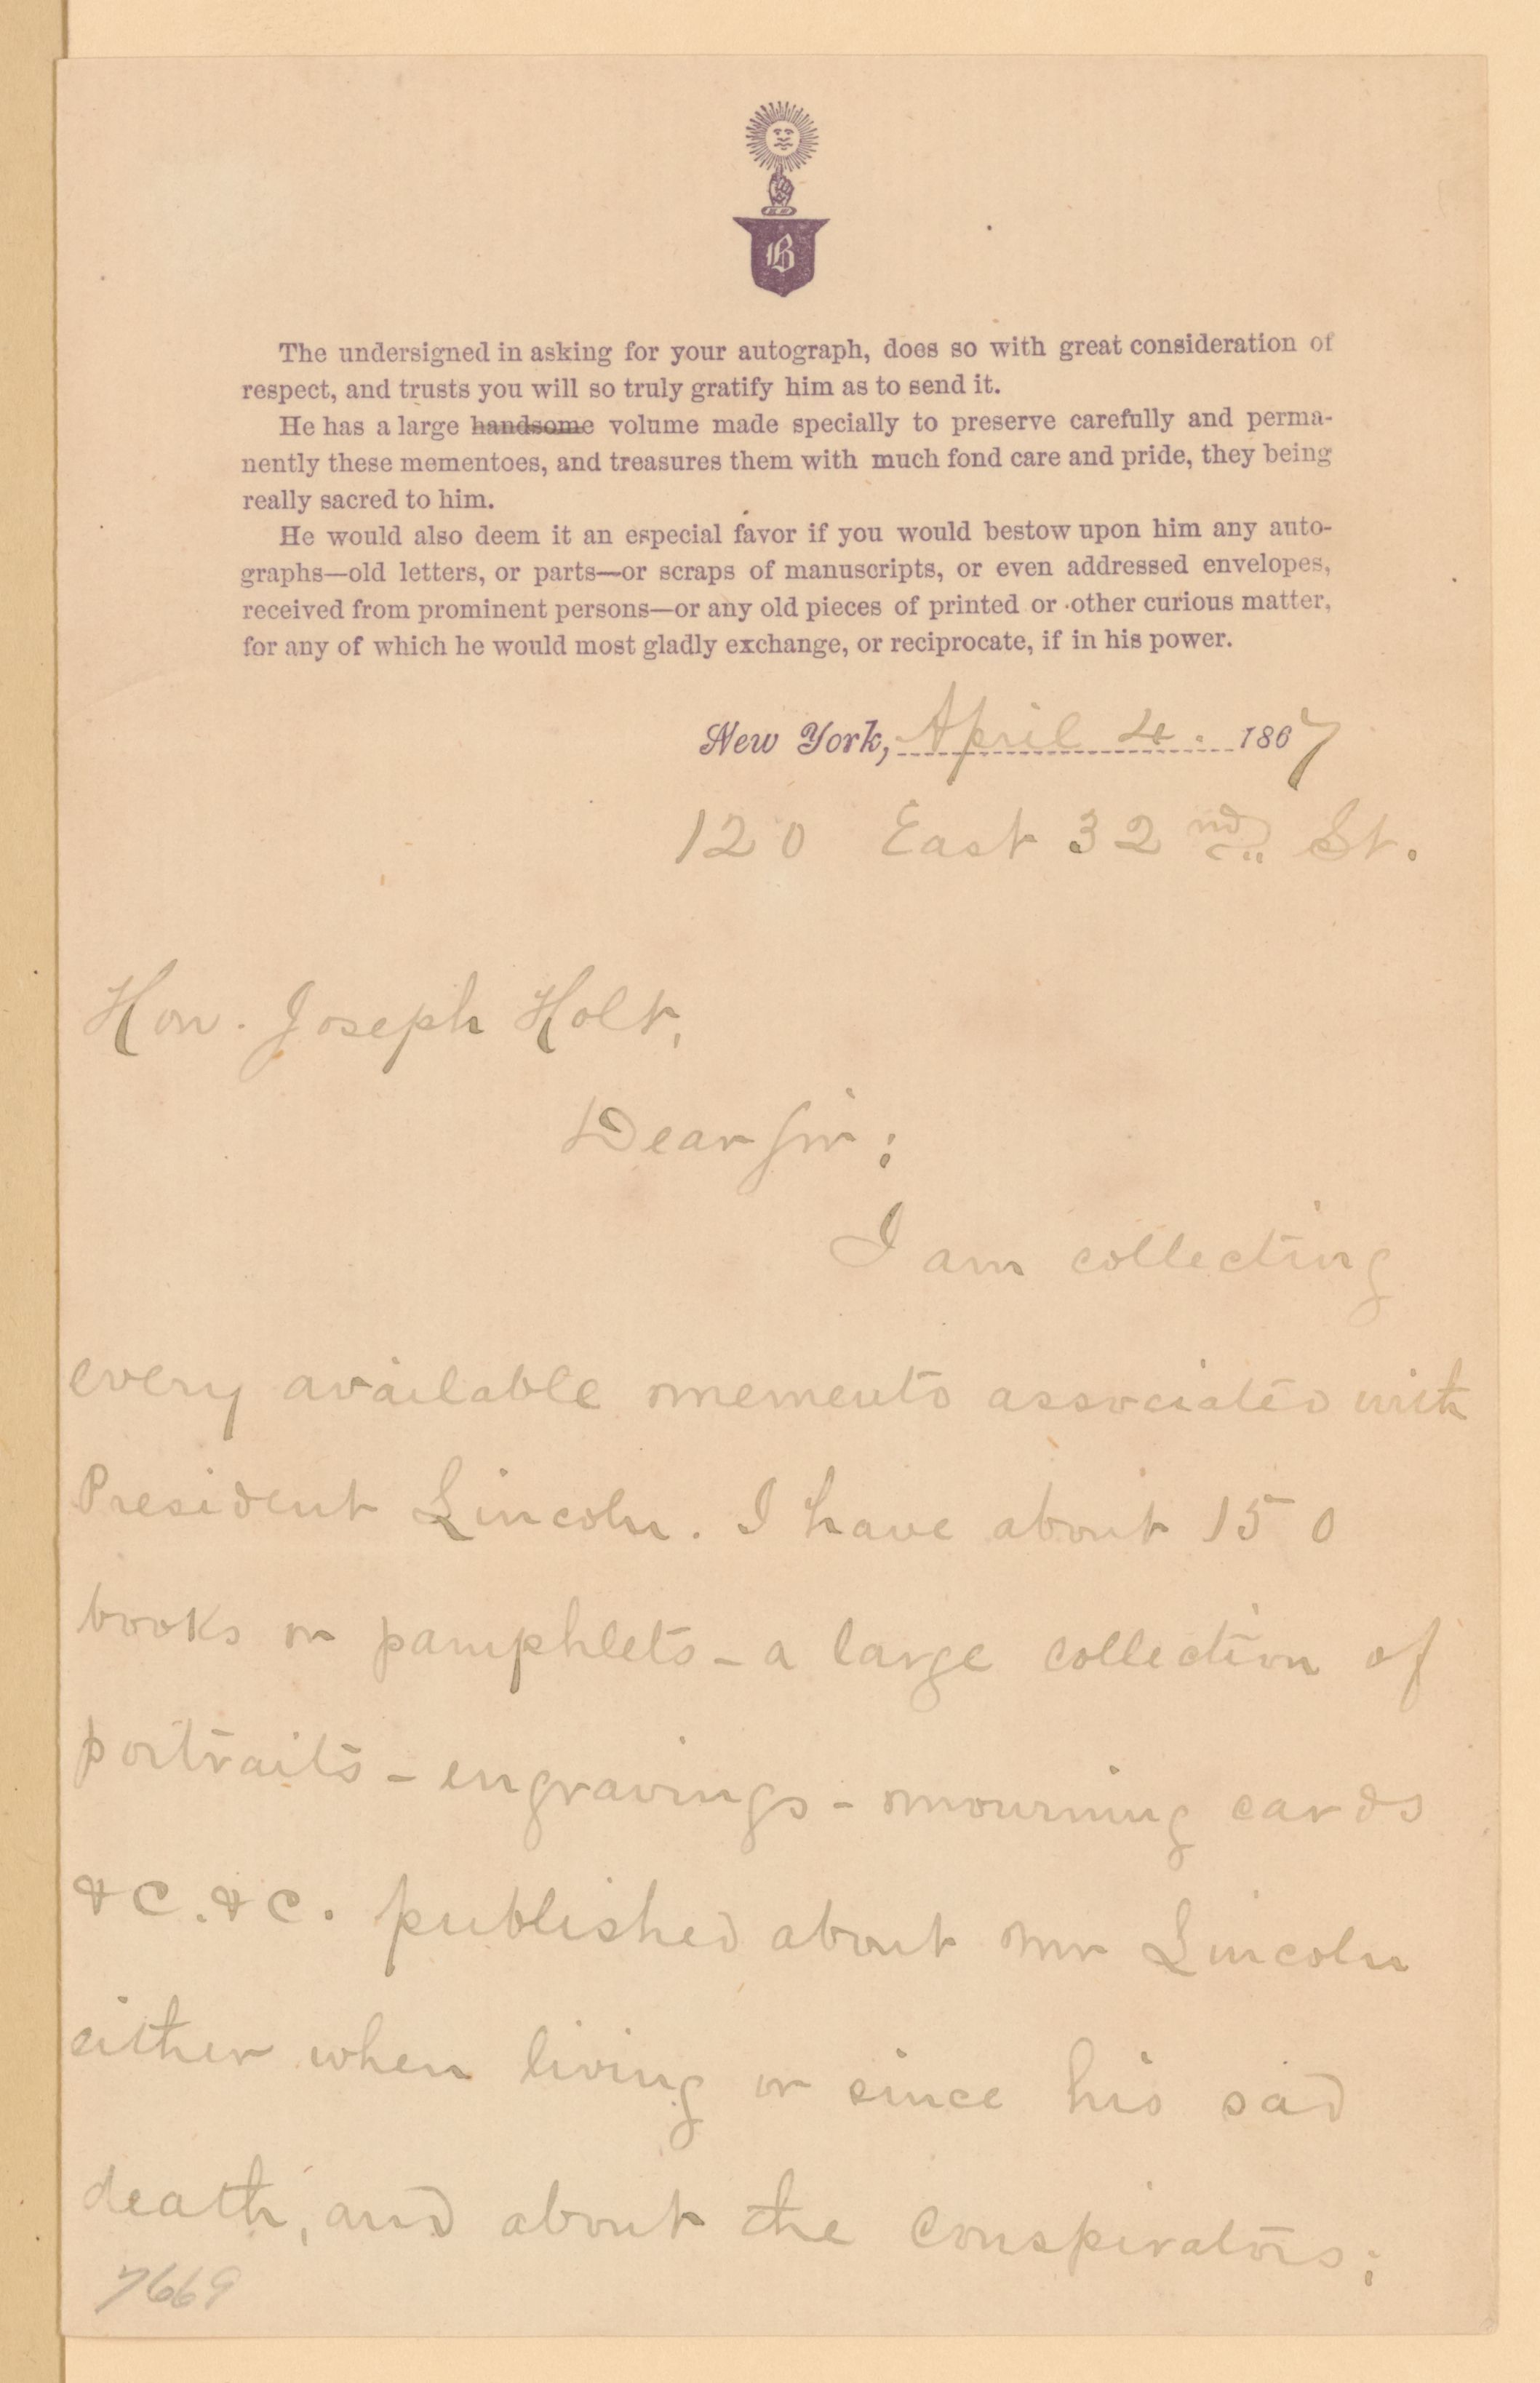 B
The undersigned in asking for your autograph, does so with great consideration of
respect, and trusts you will so truly gratify him as to send it.
He has a large handsome volume made specially to preserve carefully and perma-
nently these mementoes, and treasures them with much fond care and pride, they being
really sacred to him.
He would also deem it an especial favor if you would bestow upon him any auto-
graphs—old letters, or parts—or scraps of manuscripts, or even addressed envelopes,
received from prominent persons—or any old pieces of printed or other curious matter,
for any of which he would most gladly exchange, or reciprocate, if in his power.
New York, April 4. 1867
120 East 32nd St.
Hon. Joseph Holt,
Dear Sir:
I am collecting
every available memento associated with
President Lincoln. I have about 150
books or pamphlets - a large collection of
portraits - engravings - mourning cards
&c. &c. published about Mr Lincoln
either when living or since his sad
death, and about the conspirators;
7669